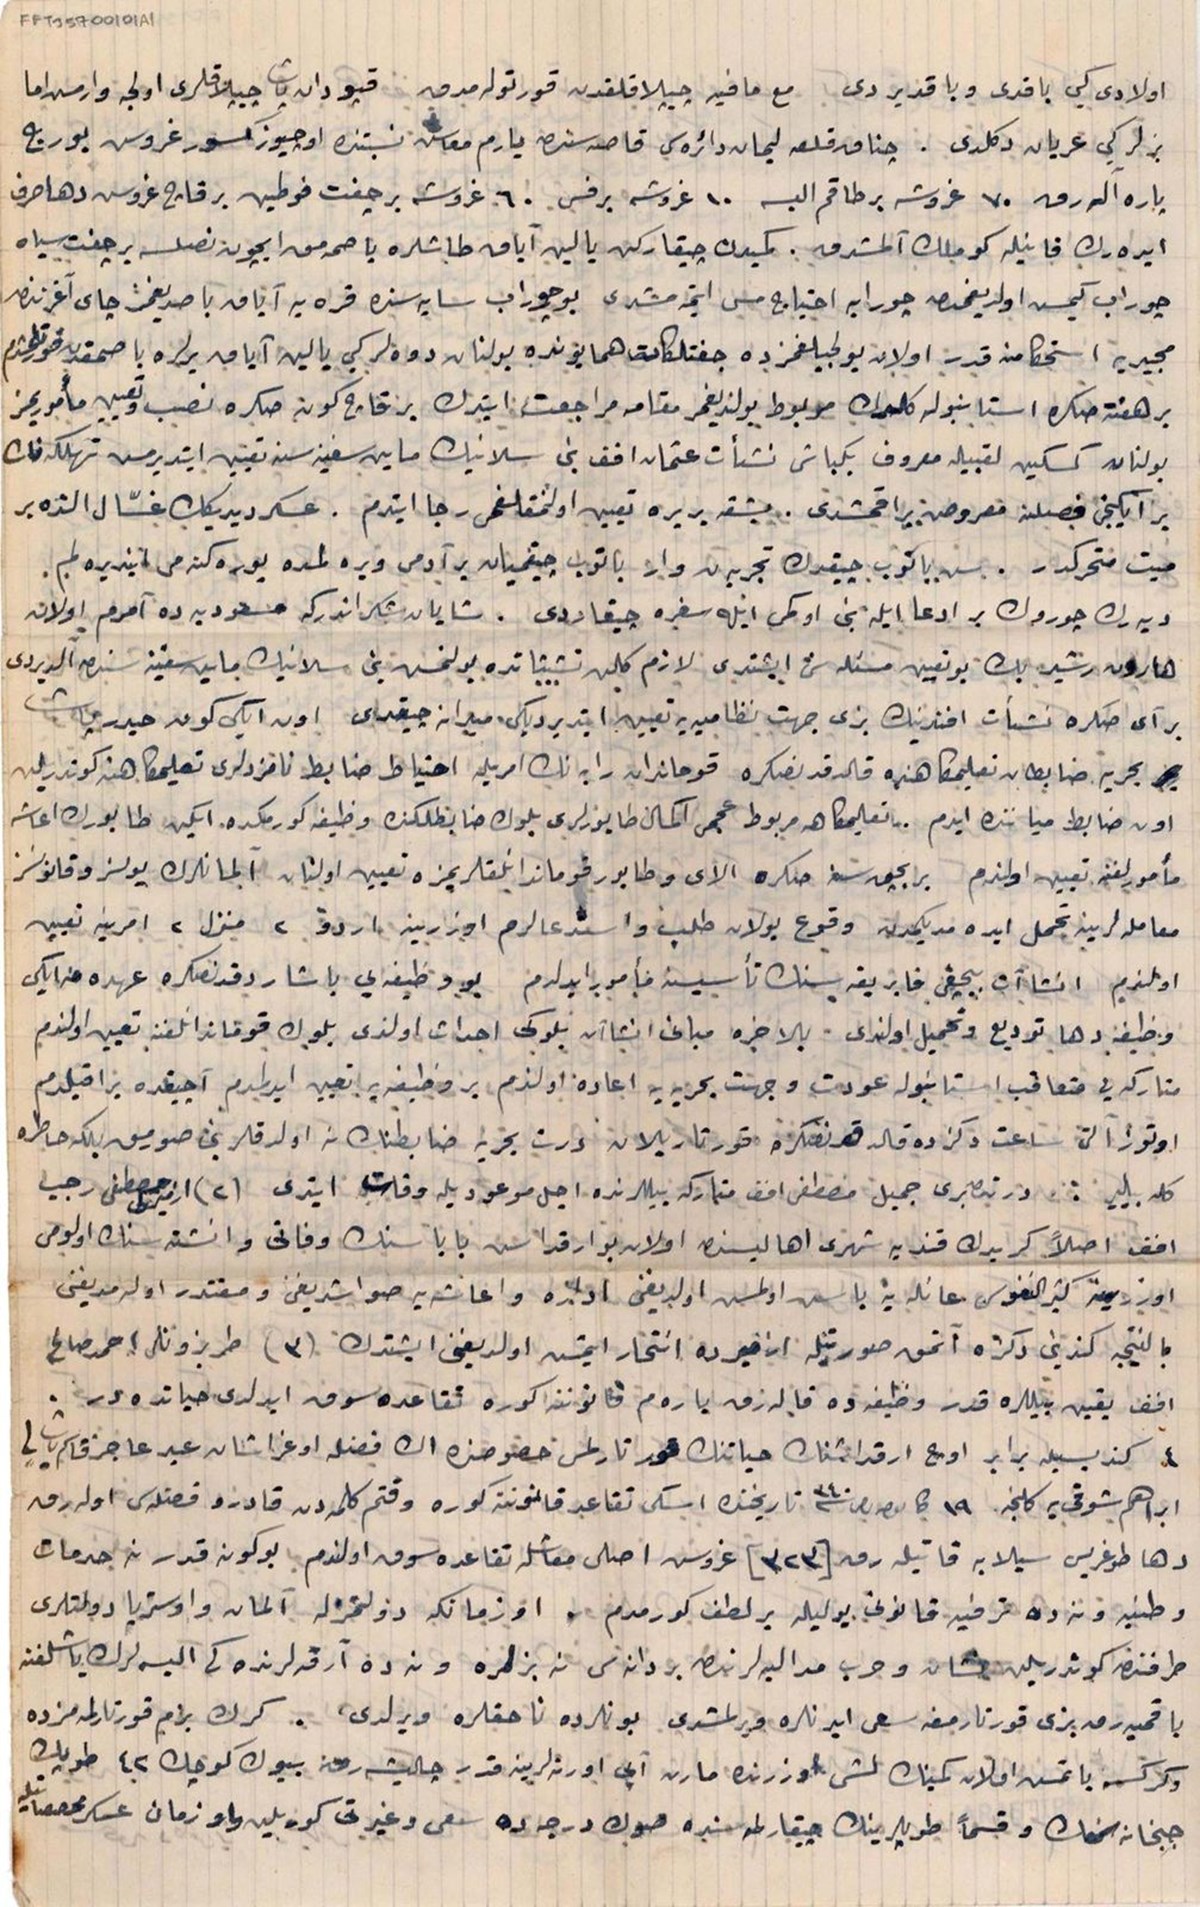 FFT195700101A1
اولادی كبی باقدی و باقدیردی مع مافیه چیپلاقلقدن قورتوله مدق قپودان پاشا چیپلاقلری اولجه وارمش اما
بزلر كبی عریان دكلدی . چناق قلعه لیمان دائره سی قاصه سندن یارم معاش نسبتنده اوچیوز كسور غروش بورج
پاره آله رق ٧٠ غروشه بر طاقم البسه ١٠ غروشه بر فس ٦٠ غروشه بر چفت فوطین بر قاچ غروش دها صرف
ایده رك فانیله كوملك آلمشدق . كمیدن چیقاركن یالین آیاق طاشلره باصمه مق ایچون نصلسه بر چفت سیاه
چوراب كیمش اولدیغمدن چورابه احتیاج مس ایتمه مشدی بو چوراب سایه سنده قره یه آیاق باصدیغمز چای آغزندن
مجیدیه استحكامنه قدر اولان یولجیلغمزده جفتلكات همایونده بولنان دوه لر كبی یالین آیاق یرلره باصمقدن قورتلمشدم
بر هفته صكره استانبوله كلدك مربوط بولندیغمز مقامه مراجعت ایتدك بر قاچ كون صكره نصب و تعیین مأموریمز
بولنان كسكین لقبیله معروف بیكباشی نشأت عثمان افندی بنی سلانیك ماین سفینه سنه تعیین ایتدیرمش تهلكه نك
بر ایكنجی فصلنه معروض براقمشدی . بشقه بر یره تعیین اولنمقلغمی رجا ایتدم . عسكر دیدیكك غسّال النده بر
میت متحركدر . سن باتوب چیقدك تجربه ك وار باتوب چیقمیان بر آدمی ویره لمده یوره كنه می ایندیره لم .
دیه رك چوروك بر ادعا ایله بنی اوكی ایله سفره چیقاردی . شایان شكراندركه مسعودیه ده آمرم اولان
هارون رشید بك بو تعیین مسئله سنی ایشتدی لازم كلن تشبثاتده بولنمش بنی سلانیك ماین سفینه سندن آلدیردی
بر آی صكره نشأت افندینك بزی جهت نظامیه یه تعیین ایتدیردیكی میدانه چیقدی اون ایكی كون حیدر پاشا
بحریه ضابطان تعلیمكاهنده قالدقدنصكره قوماندان رابه نك امریله احتیاط ضابط نامزدلری تعلیمكاهنه كوندریلن
اون ضابط میاننده ایدم . تعلیمكاهه مربوط عجمی اكمال طابورلری بلوك ضابطلكنده وظیفه كورمكده ایكن طابورك اعاشه
مأمورلغنه تعیین اولندم بر بچق سنه صكره الای و طابور قوماندانلقلریمزه تعیین اولنان آلمانلرك یولسز و قانونسز
معامله لرینه تحمل ایده مدیكمدن وقوع بولان طلب و استدعالرم اوزرینه اردو ٢ منزل ٢ امرینه تعیین
اولندم انشاآت بیچقی فابریقه سنك تأسیسنه مأمور ایدلدم بو وظیفه یی باشاردقدنصكره عهده مه ایكی
وظیفه دها تودیع و تحمیل اولندی . بالاخره مبانی انشاآت بلوكی احداث اولندی بلوك قوماندانلغنه تعیین اولندم
متاركه یی متعاقب استانبوله عودت و جهت بحریه یه اعاده اولندم بر وظیفه یه تعیین ایدلمدم آچیقده براقیلدم
اوتوز آلتی ساعت دكزده قالدقدنصكره قورتاریلان درت بحریه ضابطنك نه اولدقلرینی صورمق بلكه خاطره
كله بیلیر : درتدنبری جمیل مصطفی افندی متاركه ییللرنده اجل موعودیله وفات ایتدی (٢) ازمیرلی مصطفی رجب
افندی اصلاً كریدك قندیه شهری اهالیسندن اولان بو ارقداش باباسنك وفاتی و انشته سنك اولومی
اوزرینه كثیر النفوس عائله یه باش اولمش اولدیغنی اداره و اعاشه یه صواشدیغنی و مقتدر اوله مدیغنی
بالنتیجه كندینی دكزه آتمق صورتیله ازمیرده انتحار ایتمش اولدیغنی ایشتدك (٣) طربزونلی احمد صالح
افندی یقین ییللره قدر وظیفه ده قاله رق یاره م قانوننه كوره تقاعده سوق ایدلدی حیاتده در .
٤ كندیسیله برابر اوچ ارقداشنك حیاتنك قورتارلمسی خصوصنده اك فضله اوغراشان عبد عاجز قاسم پاشالی
ابراهم شوقی یه كلنجه ١٩ ٣٤٠ تاریخنده اسكی تقاعد قانوننه كوره وقتم كلمه دن قادرو فضله سی اوله رق
دها طوغریسی سیلابه قاتیله رق [٣٢٣] غروش اصلی معاشله تقاعده سوق اولندم بوكونه قدر نه خدمات
وطنیه و نه ده ترفیه قانونی یولیله بر لطف كورمدم . او زمانكه دولتمزله آلمان و اوستریا دولتلری
طرفندن كوندریلن نشان و حرب مدالیه لرندن بر دانه سی نه بزلره و نه ده آرقه لرنده كی البسه لرك یاشلغنه
باقمیه رق بزی قورتارمغه سعی ایدنلره ویرلمشدی بونلرده ناحقلره ویرلدی . كرك بزم قورتارلمه مزده
و كركسه یاتمش اولان كمینك لشی اوزرنده مارت آیی اورته لرینه قدر چالیشه رق بیوك كوچك ٤٢ طوپك
جبخانه سنك و قسماً طوپلرینك چیقارلمه سنده صوك درجه ده سعی و غیرتی كوریلن او زمان عسكر